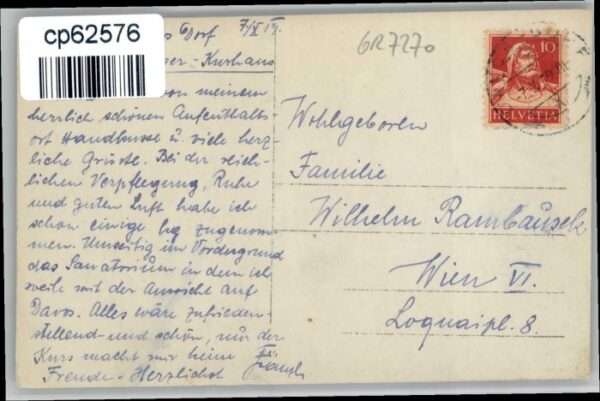 cp62576
Dorf 7/X 19.
GR7270
-Kurhaus
von meinem
herrlich schönen Aufenthalts-
ort Handküsse u. viele herz-
liche Grüsse. Bei der reich-
lichen Verpflegung, Ruhe
und guten Luft habe ich
schon einige kg zugenom-
men. Umseitig im Vordergrund
das Sanatorium in dem ich
weile mit der Ansicht auf
Davos. Alles wäre zufrieden-
stellend und schön, nur der
Kurs macht mir keine
Freude. Herzlichst
10
HELVETIA
Wohlgeboren
Familie
Wilhelm
Wien VI.
Loquaipl. 8.